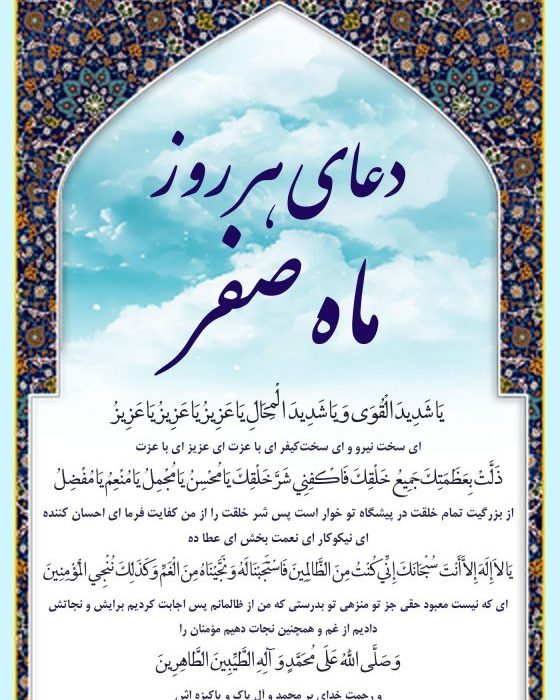 دعای هر روز
ماه صفر
يَا شَدِيدَ الْقُوَى وَ يَا شَدِيدَ الْمِحَالِ يَا عَزِيزُ يَا عَزِيزُ يَا عَزِيزُ
ای سخت نیرو و ای سخت‌کیفر ای با عزت ای عزیز ای با عزت
ذَلَّتْ بِعَظَمَتِكَ جَمِيعُ خَلْقِكَ فَاكْفِنِي شَرَّ خَلْقِكَ يَا مُحْسِنُ يَا مُجْمِلُ يَا مُنْعِمُ يَا مُفْضِلُ
از بزرگیت تمام خلقت در پیشگاه تو خوار است پس شر خلقت را از من کفایت فرما ای احسان کننده
ای نیکوکار ای نعمت بخش ای عطا ده
يَا لاَ إِلَهَ إِلاَّ أَنْتَ سُبْحَانَكَ إِنِّي كُنْتُ مِنَ الظَّالِمِينَ فَاسْتَجَبْنَا لَهُ وَ نَجَّيْنَاهُ مِنَ الْغَمِّ وَ كَذَلِكَ نُنْجِي الْمُؤْمِنِينَ
ای که نیست معبود حقی جز تو منزهی تو بدرستی که من از ظالمانم پس اجابت کردیم برایش و نجاتش
دادیم از غم و همچنین نجات دهیم مؤمنان را
وَ صَلَّى اللهُ عَلَى مُحَمَّدٍ وَ آلِهِ الطَّيِّبِينَ الطَّاهِرِينَ
و رحمت خدای بر محمد و ال پاک و پاکیزه اش